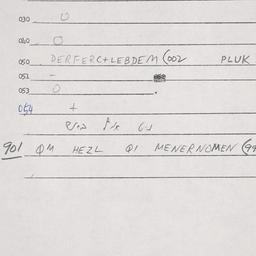 030 0
040 0
050 DERFERC+LEBDEM (002 PLUK
051 -
053 0 .
054 +
901 QM HEZL QI MENERNOMEN (99